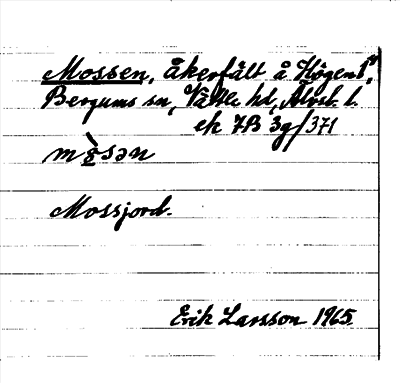 Mossen, åkerfält å Högen 1⁴,
Bergums sn, Vättle hd, Älvsb. l.
ek 7B 3g/371
mòsən
Mossjord.
Erik Larsson 1965.